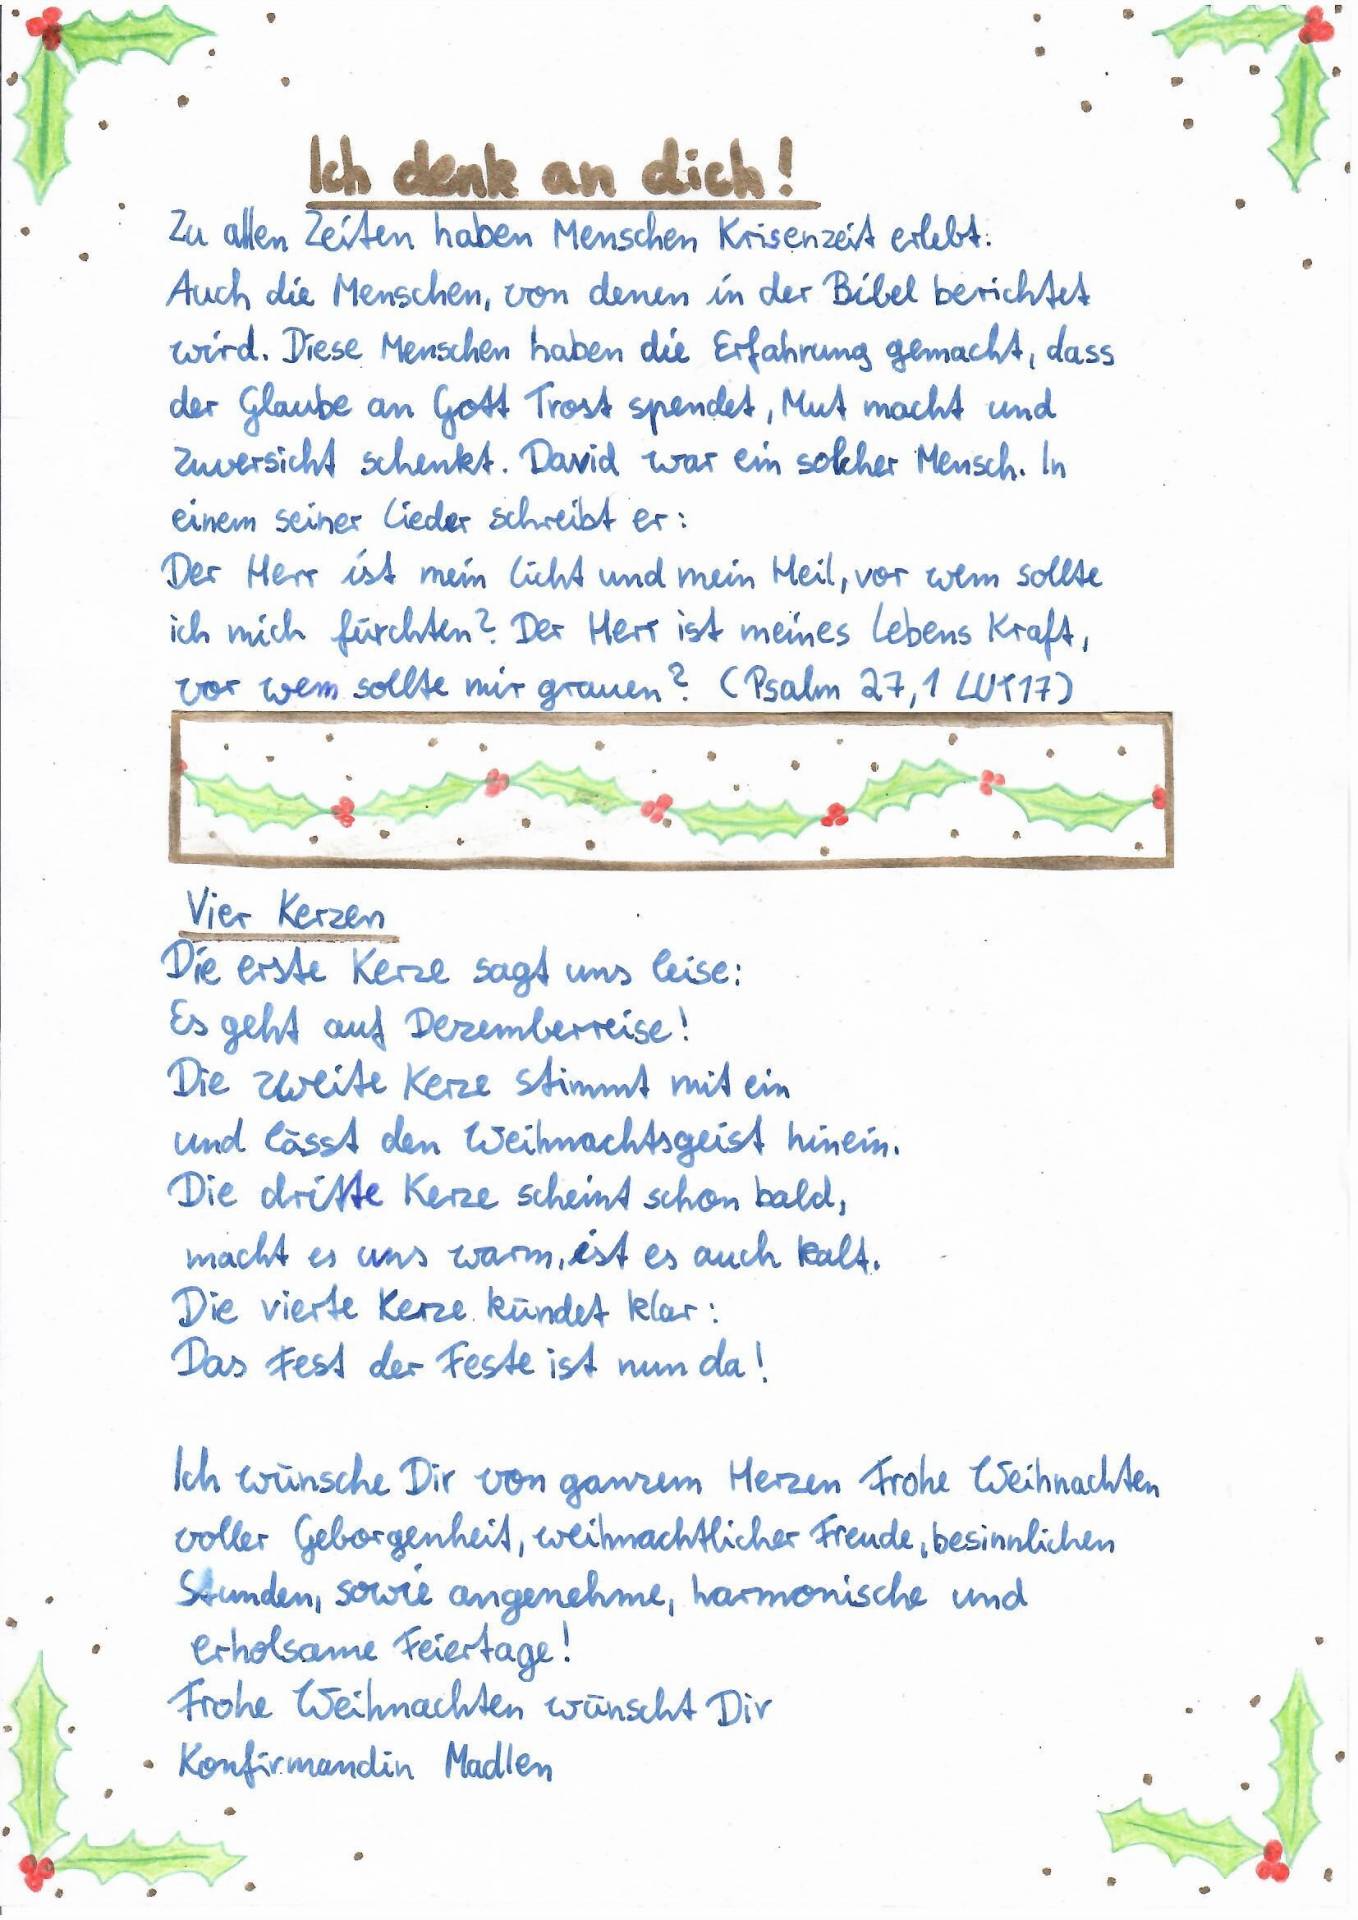 Ich denk an dich!
Zu allen Zeiten haben Menschen Krisenzeit erlebt:
Auch die Menschen, von denen in der Bibel berichtet
wird. Diese Menschen haben die Erfahrung gemacht, dass
der Glaube an Gott Trost spendet, Mut macht und
Zuversicht schenkt. David war ein solcher Mensch. In
einem seiner Lieder schreibt er:
Der Herr ist mein Licht und mein Heil, vor wem sollte
ich mich fürchten? Der Herr ist meines Lebens Kraft,
vor wem sollte mir grauen? (Psalm 27,1 LUT17)
Vier Kerzen
Die erste Kerze sagt uns leise:
Es geht auf Dezemberreise!
Die zweite Kerze stimmt mit ein
und lässt den Weihnachtsgeist hinein.
Die dritte Kerze scheint schon bald,
macht es uns warm, ist es auch kalt.
Die vierte Kerze kündet klar:
Das Fest der Feste ist nun da!
Ich wünsche Dir von ganzem Herzen Frohe Weihnachten
voller Geborgenheit, weihnachtlicher Freude, besinnlichen
Stunden, sowie angenehme, harmonische und
erholsame Feiertage!
Frohe Weihnachten wünscht Dir
Konfirmandin Madlen